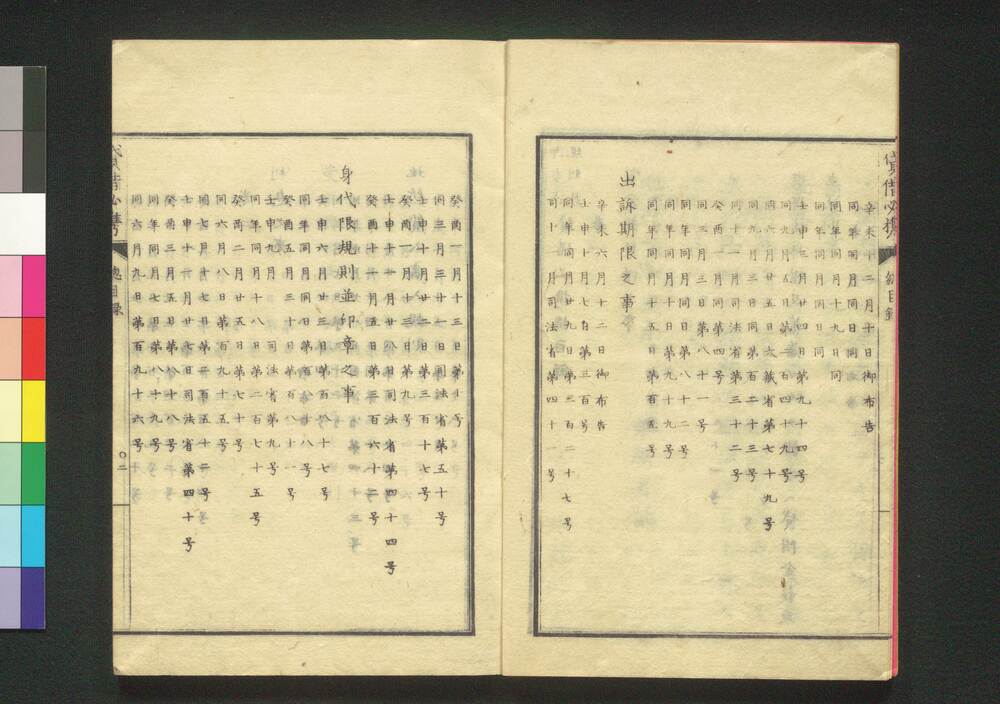 貸借必携
總目録
辛未十二月十日御布告
同年同月同日同
同年同月十九日同
同年同月同日同
壬申三月廿四日第九十四号
同九月五日第二百四十九号
同六月廿五日大蔵省第七十九号
同九月三日同第百二十三号
同十一月司法省第三十二号
癸酉一月第四号
同三月三日第八十一号
同年同月同日第八十二号
同年同月十九日第九十九号
同年同月十五日第百五号
出訴期限之事
辛未六月十二日御布告
壬申十月七日第三百号
同年同月廿九日第三百二十七号
同十一月司法省第四十一号
癸酉一月十三日第十号
同三月三十一日司法省第五十号
壬申十月廿二日第三百十七号
癸酉一月十三日第九号
壬申十一月廿八日司法省第四十四号
癸酉十一月五日第三百六十二号
身代限規則並印章之事
壬申六月廿三日第百八十七号
同年同月同日第百八十八号
癸酉五月三十日第百八十一号
壬申九月司法省第九号
同年同月十八日第二百七十五号
癸酉二月廿五日第七十号
同六月八日第百九十五号
同七月十七日第二百五十二号
壬申十一月廿七日司法省第四十号
癸酉三月五日第八十八号
同年同月七日第八十九号
同六月九日第百九十六号
貸借必携
總目録
〇二